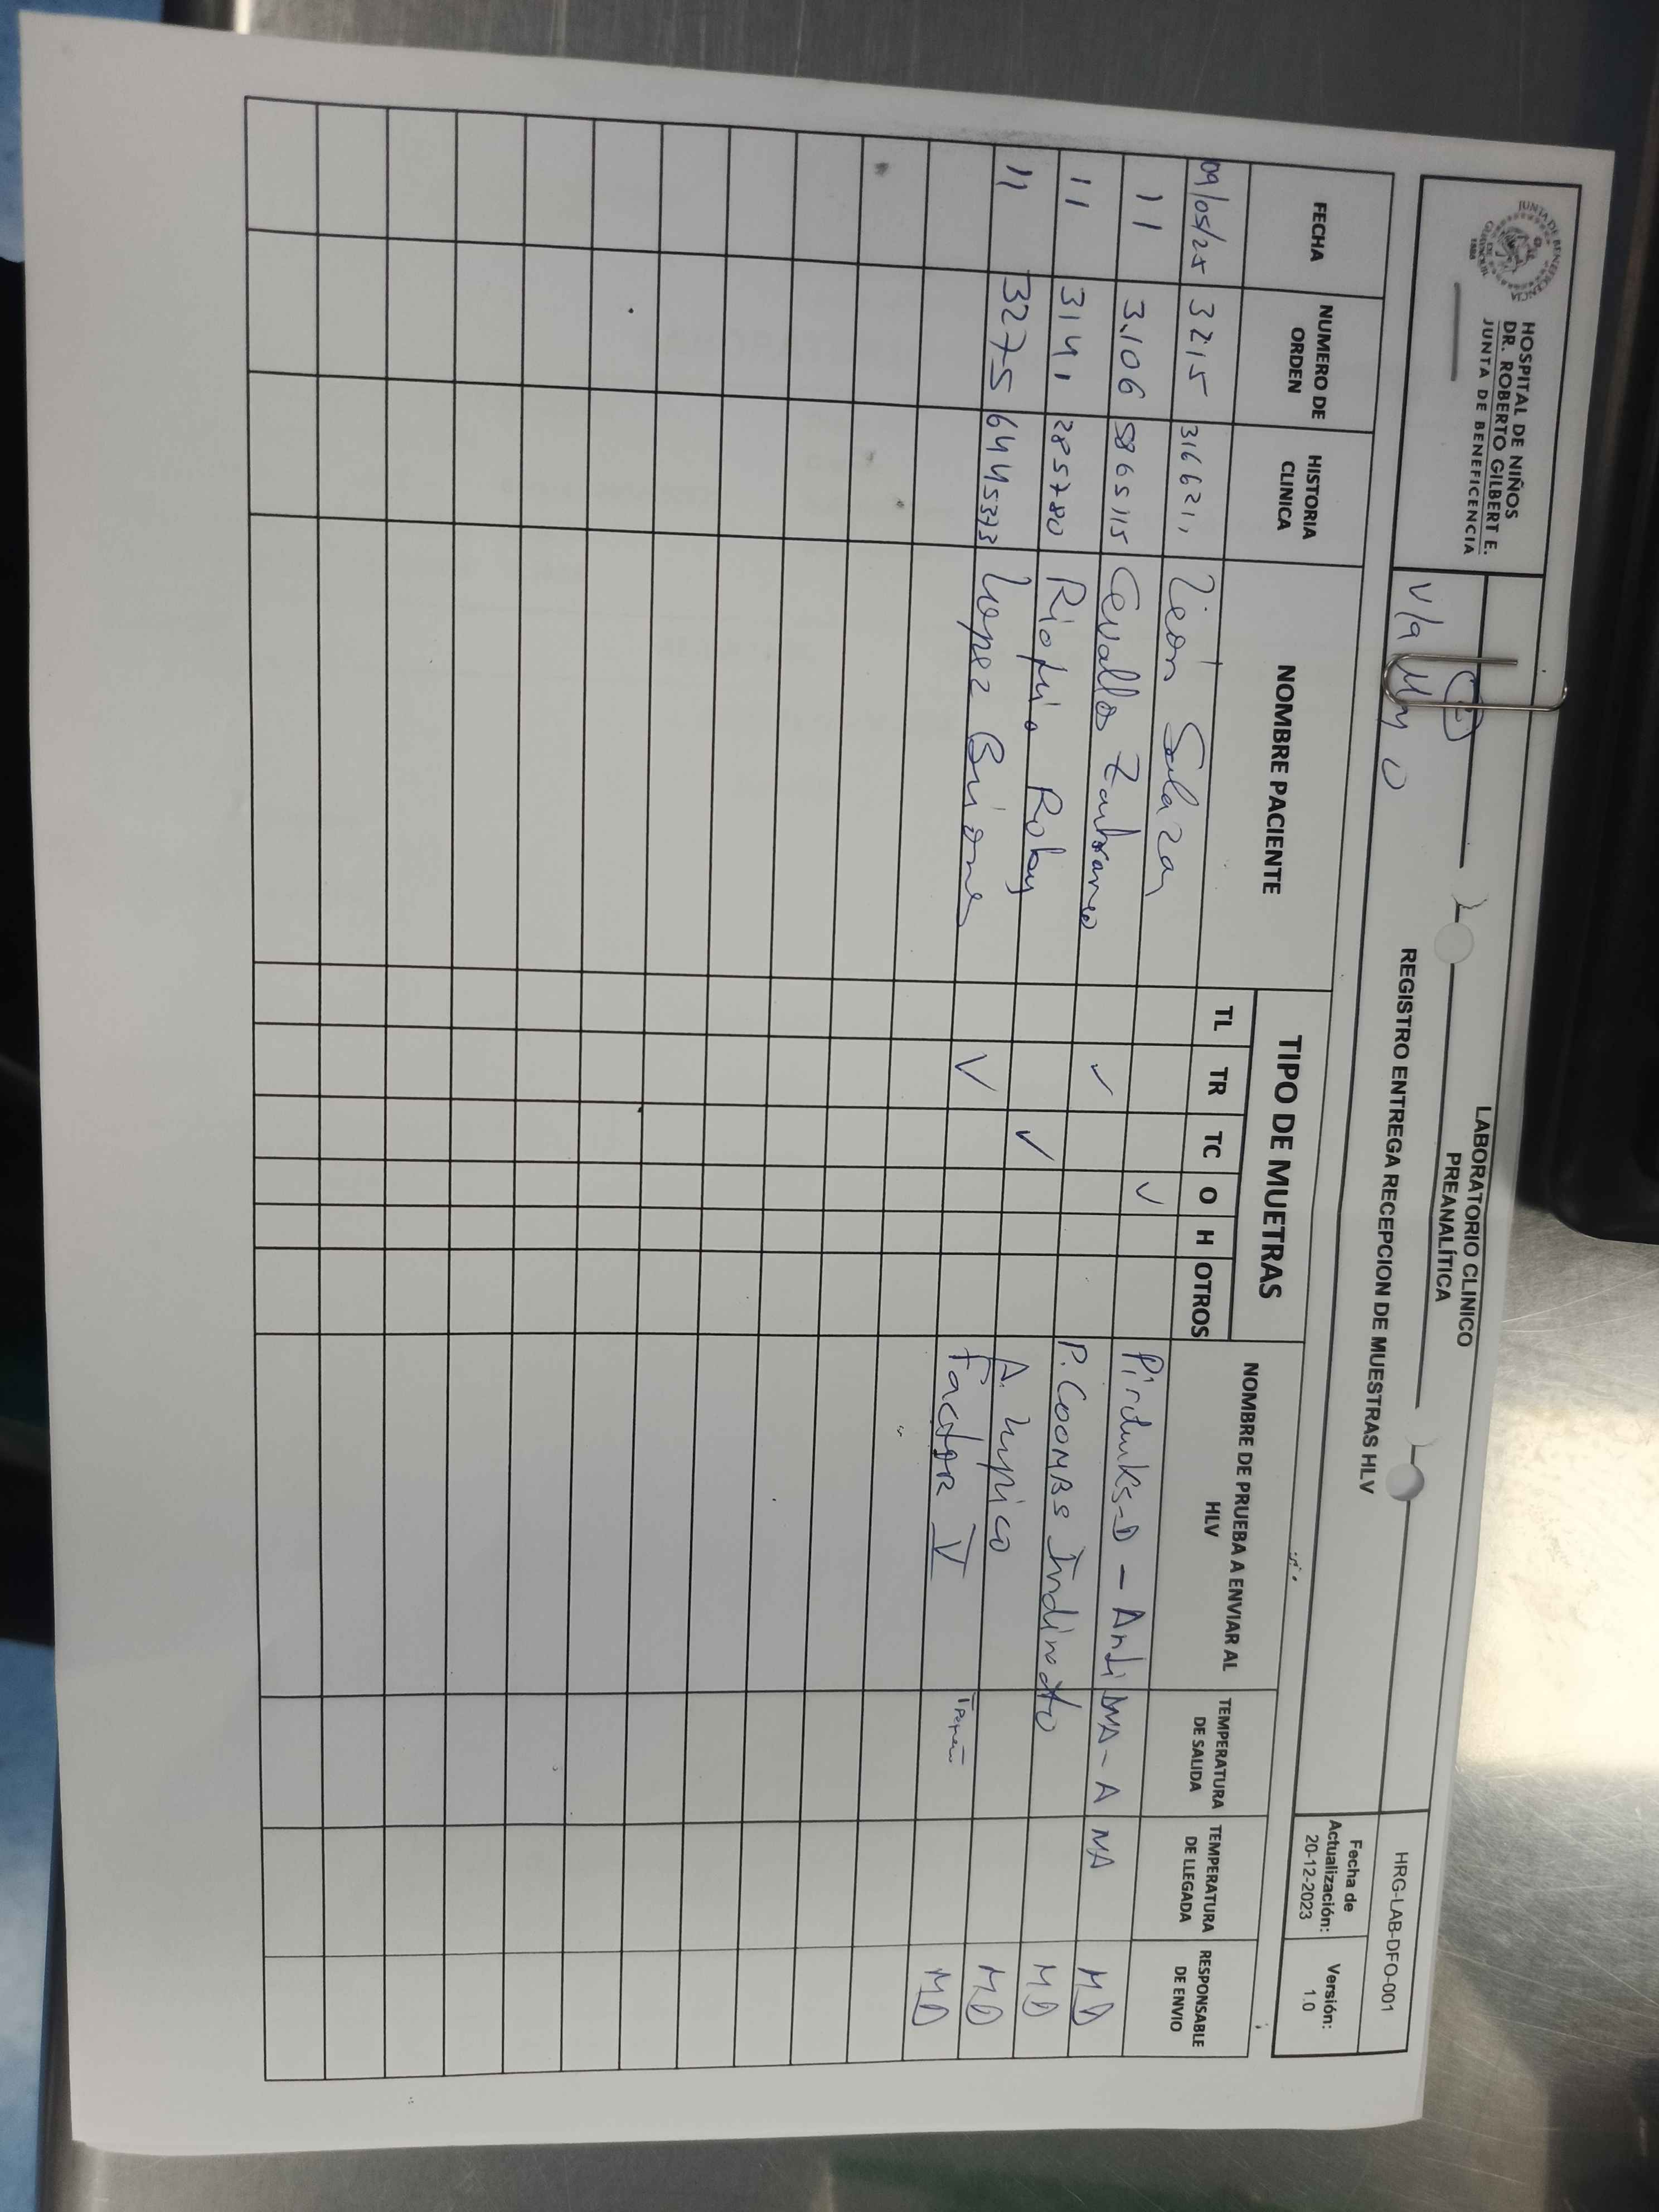 JUNTA DE BENEFICENCIA
DE GUAYAQUIL
1888
HOSPITAL DE NIÑOS
DR. ROBERTO GILBERT E.
JUNTA DE BENEFICENCIA
LABORATORIO CLINICO
PREANALÍTICA
REGISTRO ENTREGA RECEPCION DE MUESTRAS HLV
HRG-LAB-DFO-001
Fecha de
Actualización:
20-12-2023
Versión:
1.0
FECHA
NUMERO DE
ORDEN
HISTORIA
CLINICA
NOMBRE PACIENTE
TIPO DE MUETRAS
TL TR TC O H OTROS
NOMBRE DE PRUEBA A ENVIAR AL
HLV
TEMPERATURA
DE SALIDA
TEMPERATURA
DE LLEGADA
RESPONSABLE
DE ENVIO
09/05/25 3215 León Salazar ✓
11 3.106 5865115 Cevallo Zambrano ✓ - Anti DNA - ANA MD
11 3141 285780 Riofrio ✓ P. COOMBS Indirecto MD
11 3275 Lopez Briones ✓ A. Lupico MD
FACTOR V MD